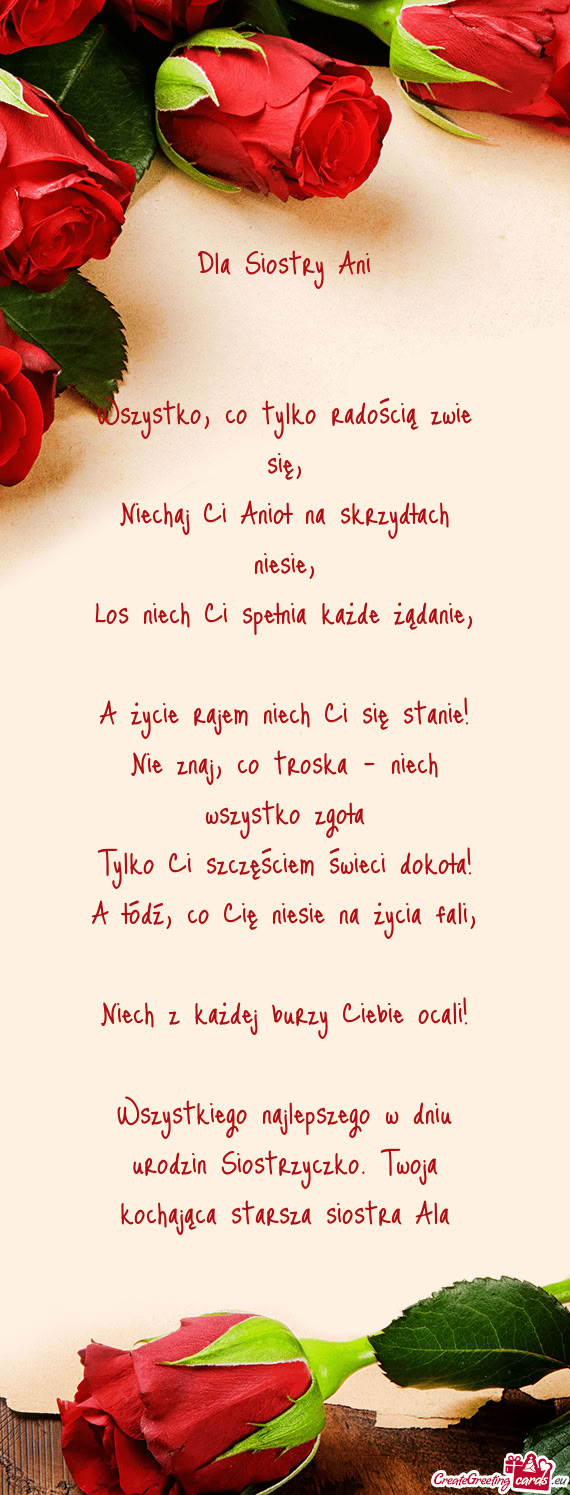 Dla Siostry Ani
Wszystko, co tylko radością zwie
się,
Niechaj Ci Anioł na skrzydłach
niesie,
Los niech Ci spełnia każde żądanie,
A życie rajem niech Ci się stanie!
Nie znaj, co troska - niech
wszystko zgoła
Tylko Ci szczęściem świeci dokoła!
A łódź, co Cię niesie na życia fali,
Niech z każdej burzy Ciebie ocali!
Wszystkiego najlepszego w dniu
urodzin Siostrzyczko. Twoja
kochająca starsza siostra Ala
CreateGreetingcards.eu